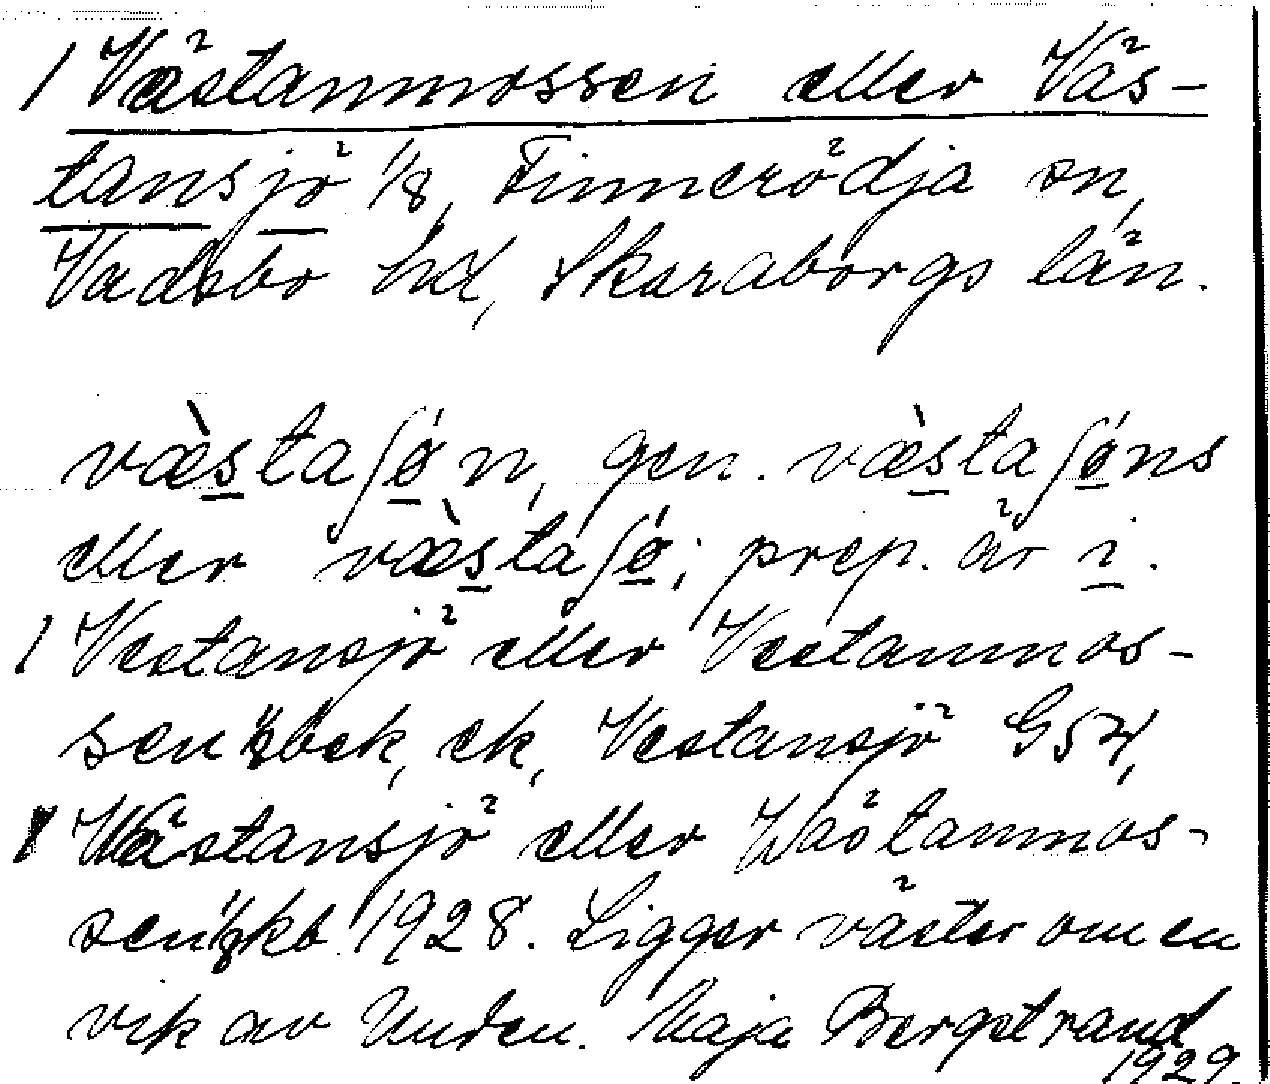 1 Västanmossen eller Väs-
tansjö 1/8, Finnerödja sn,
Vadsbo hd, Skaraborgs län.
væ̀staʃǿn, gen. væ̀staʃǿns
eller væ̀staʃǿ; prep. är i.
1 Vestansjö eller Vestanmos-
sen jbek, ek, Vestansjö G54,
1 Wästansjö eller Wästanmos-
sen 1/8 kb 1928. Ligger väster om en
vik av Unden. Maja Bergstrand
1929.